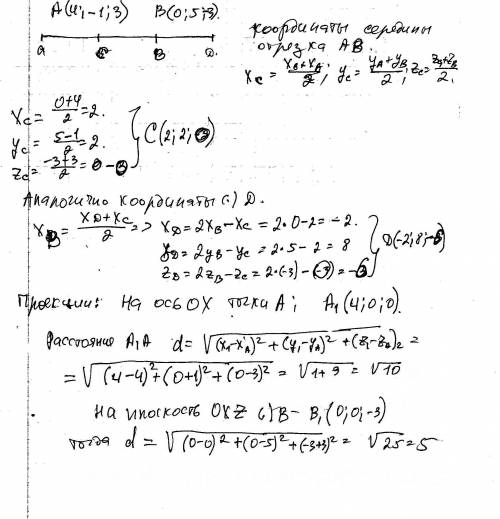 A(4;-1;3) B(0;5;-3).
a C B D.
координаты середины
отрезка AB.
x_C = (x_B+x_A)/2; y_C = (y_A+y_B)/2; z_C = (z_A+z_B)/2.
x_C = (0+4)/2 = 2.
y_C = (5-1)/2 = 2.
z_C = (-3+3)/2 = 0
C(2; 2; 0)
Аналогично координаты D.
x_B = (x_D+x_C)/2 => x_D = 2x_B - x_C = 2·0-2 = -2.
y_D = 2y_B - y_C = 2·5-2 = 8
z_D = 2z_B - z_C = 2·(-3) = -6
D(-2; 8; -6)
Проекции: На ось OX точки A; A₁(4;0;0).
Расстояние A₁A d = √((x₁-x_A)²+(y₁-y_A)²+(z₁-z_A)² =
= √((4-4)²+(0+1)²+(0-3)² = √1+9 = √10
На плоскость OXZ B - B₁(0;0;-3)
тогда d = √((0-0)²+(0-5)²+(-3+3)² = √25 = 5